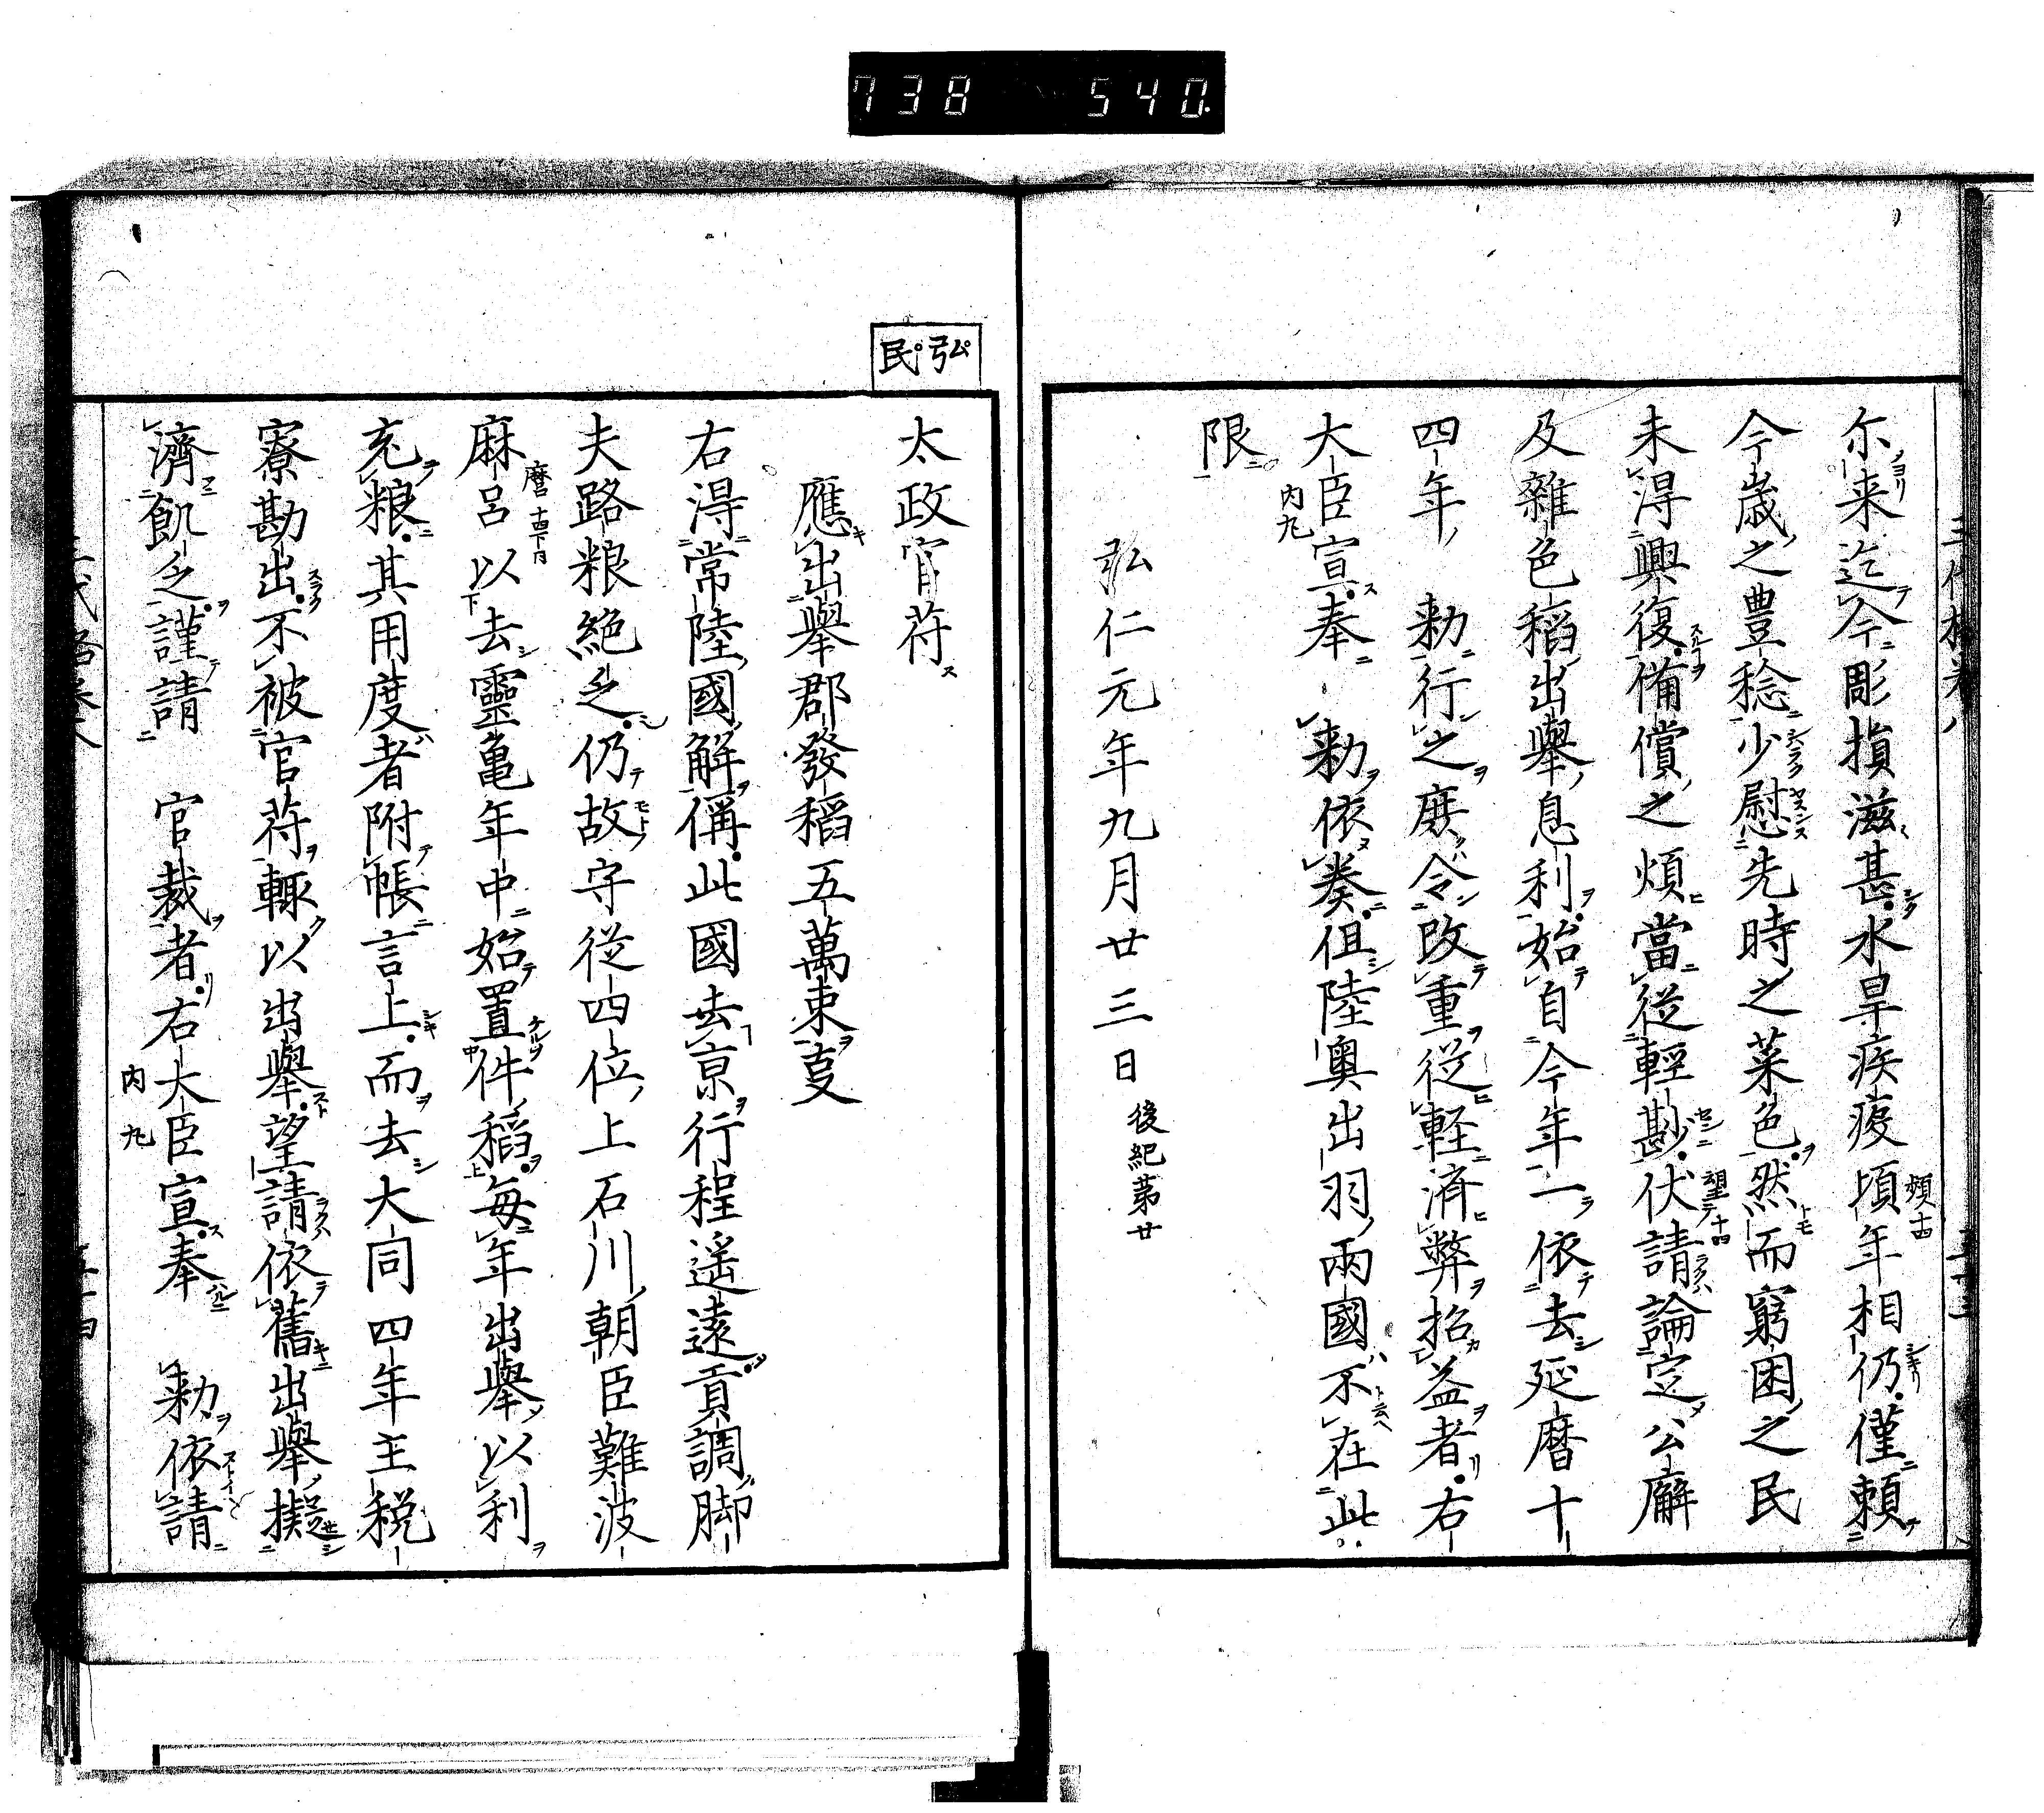 738 540
尓来迄今彫損滋甚水旱疾疫頃年相仍僅頼
今歳之豊稔少慰先時之菜色然而窮困之民
未淂興復備償之煩當從輕尠伏請論定公廨
及雜色稻出舉息利始自今年一依去延暦十
四年 勅行之庻令改重從軽済弊招益者右
大臣宣奉 勅依奏但陸奥出羽兩國不在此
限
弘仁元年九月廿三日 後紀第廿
弘民
太政官苻
應出舉郡發稻五萬束㕝
右淂常陸國解偁此國去京行程遥遠貢調脚
夫路粮絶乏仍故守従四位上石川朝臣難波
麻呂以去靈亀年中始置件稻毎年出舉以利
充粮其用度者附帳言上而去大同四年主税
寮勘出不被官苻輙以出舉望請依舊出舉擬
濟飢乏謹請 官裁者右大臣宣奉 勅依請